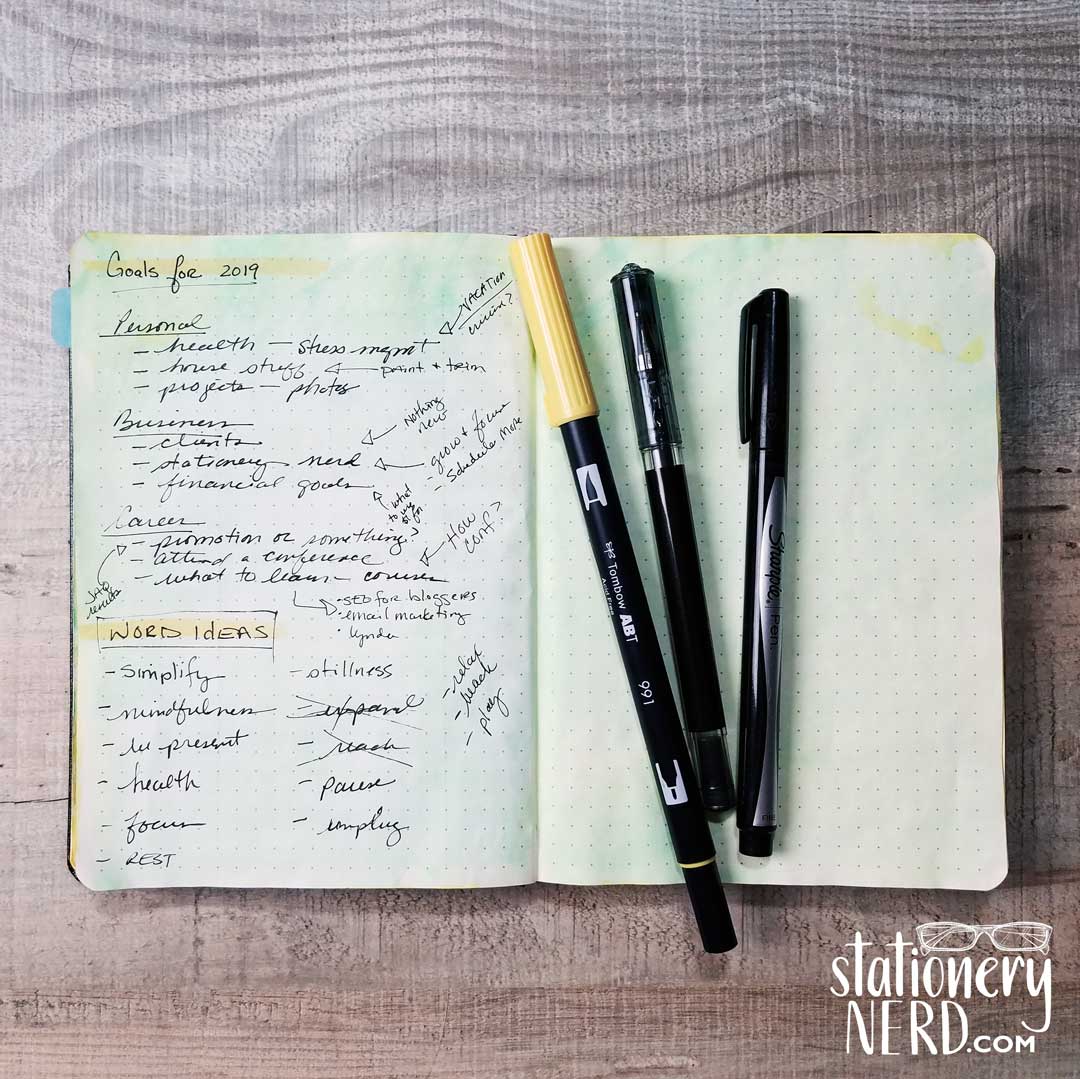 Goals for 2019
Personal
- health - stress mgmt
VACATION
cruise?
- house stuff
paint + trim
- projects - photos
Business
- clients
Nothing
new
- stationery nerd
- grow + focus
- Schedule More
- financial goals
what
to use
it for
Career
- promotion or something?
- attend a conference
How
conf?
- what to learn - courses
· SEO for bloggers
· email marketing
· Lynda
WORD IDEAS
- simplify
- mindfulness
- be present
- health
- focus
- REST
- stillness
- expand
- reach
- pause
- unplug
- relax
- play
Tombow ABT
Acid Free
991
Sharpie Pen
stationery
NERD.COM